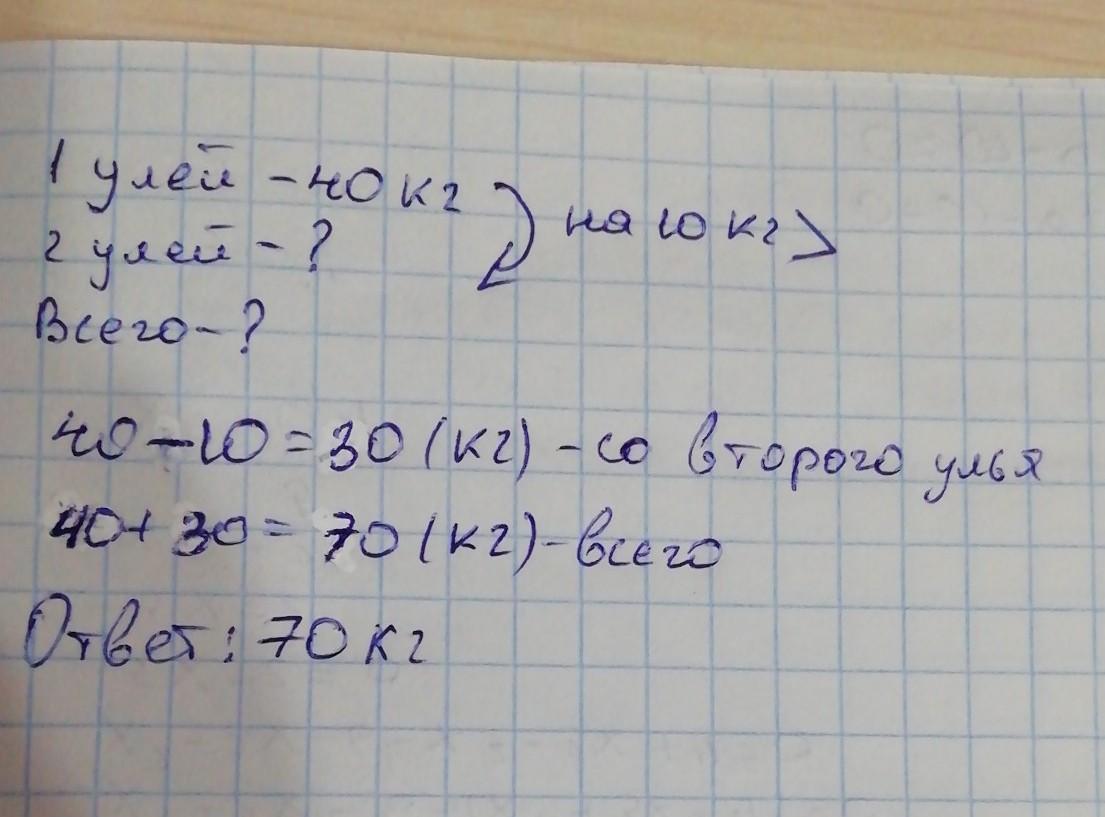 1 улей - 40 кг
2 улей - ?
на 10 кг >
Всего - ?
40 - 10 = 30 (кг) - со второго улья
40 + 30 = 70 (кг) - всего
Ответ: 70 кг